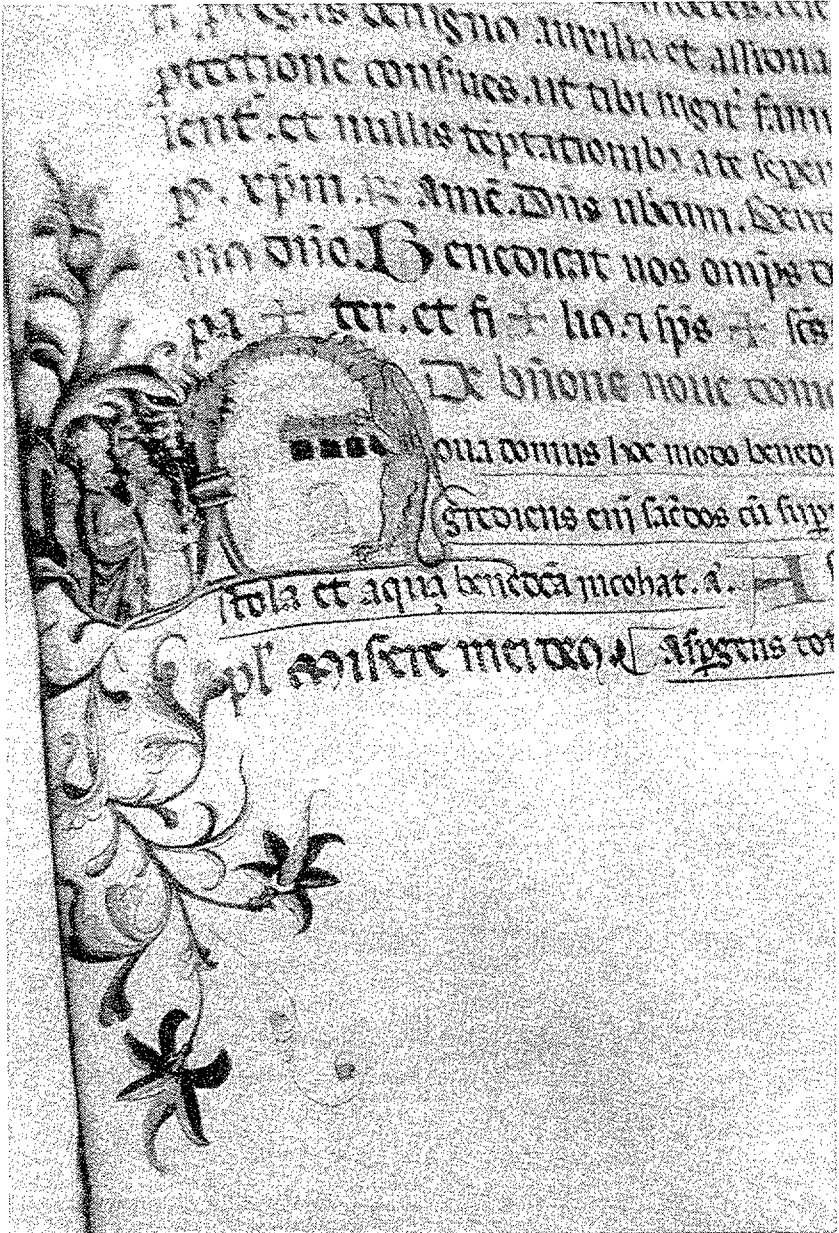 benigno auxilia et assidua
ptectione confues. ut tibi iugit̄ famu
lent̄. et nullis tēptationibꝰ a te sepen
pº. xp̄m. ℟ Amē. Dn̄s ubcum. Bene
mꝰ dn̄o. Benedicat uos omp̄s d
pa + ter. et fi + lio. ⁊ sp̄s + sc̄s
De bn̄one noue dom
oua domus hec modo benedi
grediens eni sac̄dos cū sup
stola et aqua benedc̄a incohat. a͛. A
pſ Misere mei deꝰ. Aspgens tot